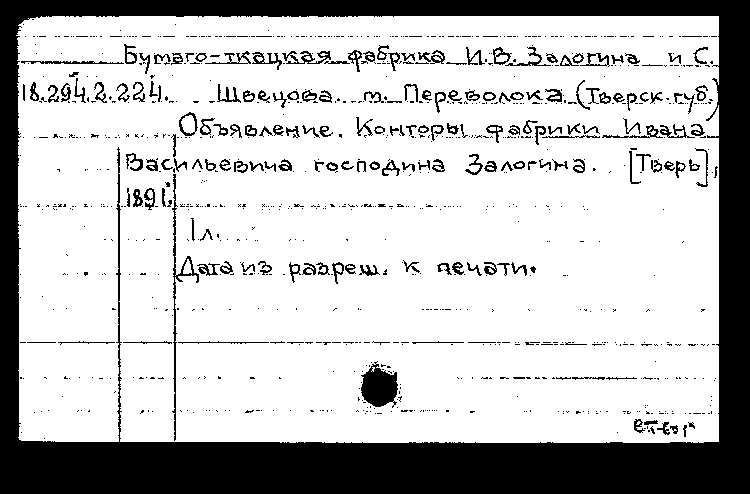 Бумаго-ткацкая фабрика И.В. Залогина и С.
18.294.2.224. Швецова. m. Переволока (Тверск.губ.)
Объявление. Конторы фабрики Ивана
Васильевича господина Залогина. [Тверь],
1891.
1л.
Дата из разреш. к печати.